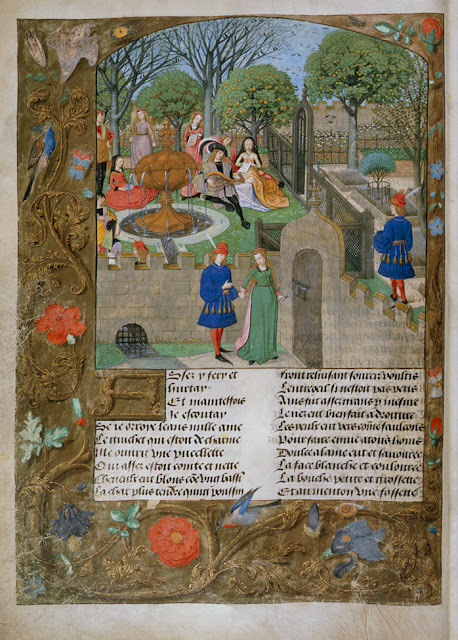 Assez y fery et
hurtay
Et maintesfois
Je escoutay
Se ie orroye leans nulle ame
Le guichet qui estoit de charme
Me ouurit vne pucellette
Qui assez estoit cointe et nette
Cheueulx eut blons cõe vng bassi
La char plus tendre qung poussin
Front reluisant sourcis voultis
Lentreoeil si nestoit pas petis
Ains fut assez grans p mesure
Le nez eut bien fait a droiture
Les yeulx eut vers cõe faulcons
Pour faire enuie a tous homs
Doulce alaine eut et sauouree
La face blanche et coulouree
La bouche petite et grossette
Et au menton vne fossette